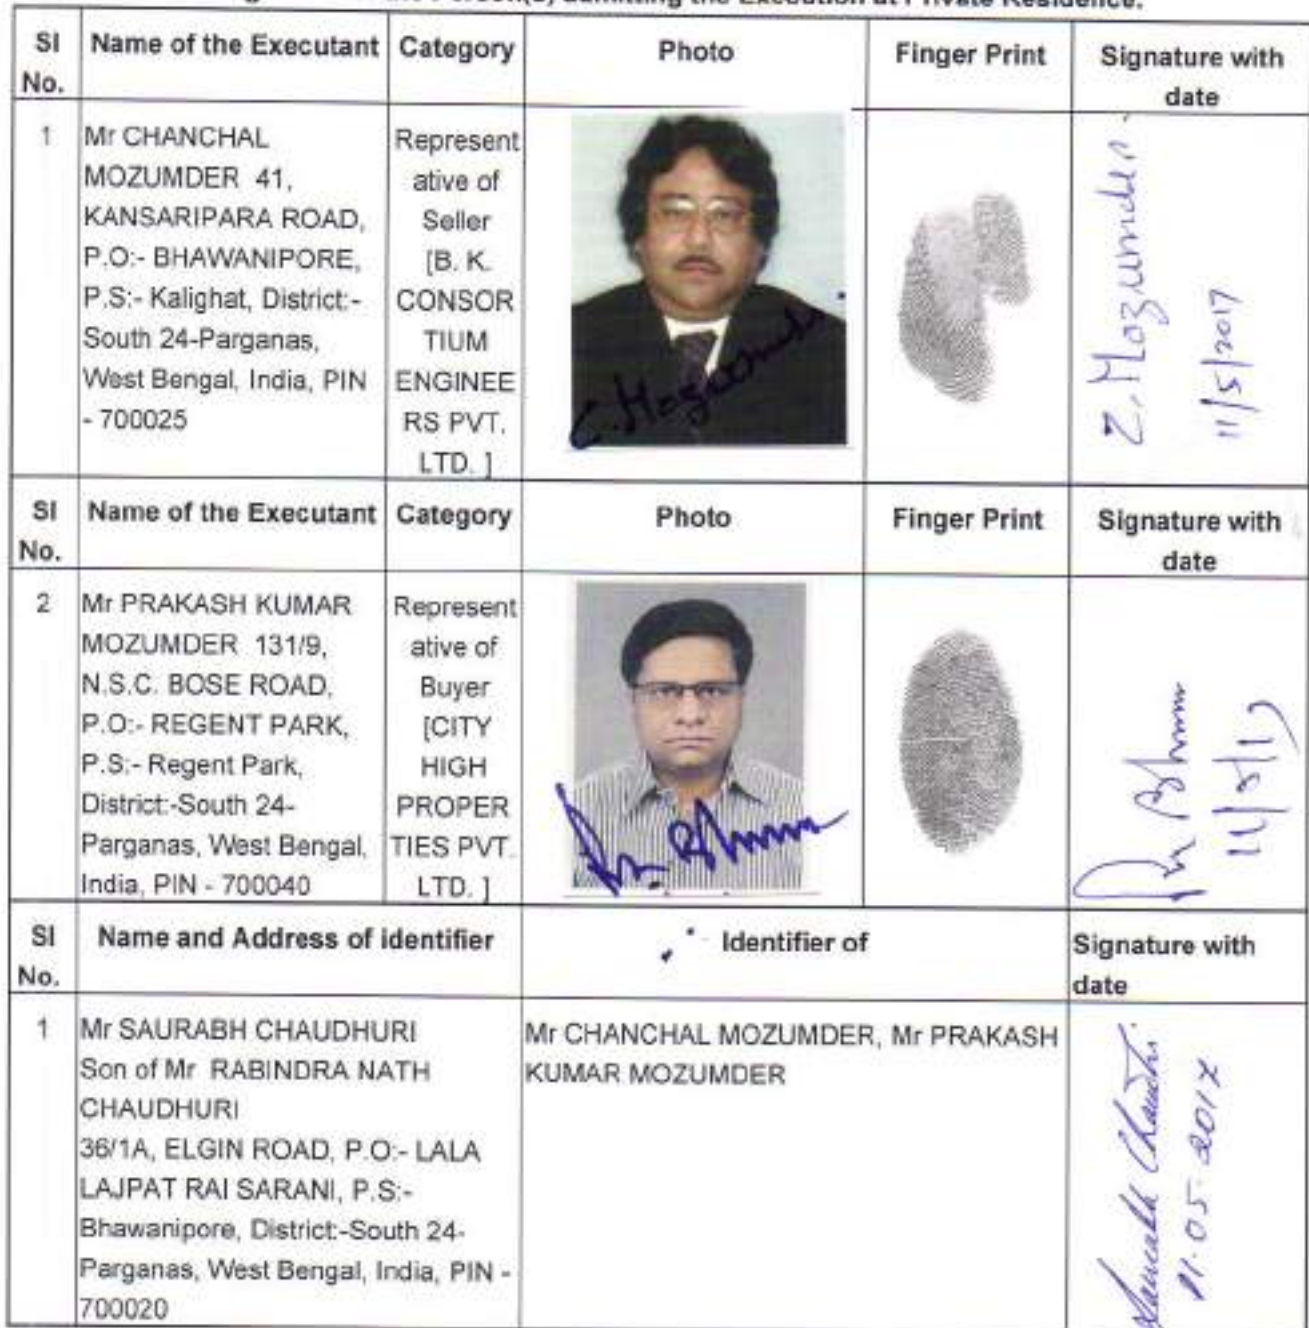 the Person(s) admitting the Execution at Private Residence.
SI No.
Name of the Executant
Category
Photo
Finger Print
Signature with date
1
Mr CHANCHAL
MOZUMDER 41,
KANSARIPARA ROAD,
P.O:- BHAWANIPORE,
P.S:- Kalighat, District:-
South 24-Parganas,
West Bengal, India, PIN
- 700025
Represent
ative of
Seller
[B. K.
CONSOR
TIUM
ENGINEE
RS PVT.
LTD. ]
C. Mozumder
C. Mozumder
11/5/2017
SI No.
Name of the Executant
Category
Photo
Finger Print
Signature with date
2
Mr PRAKASH KUMAR
MOZUMDER 131/9,
N.S.C. BOSE ROAD,
P.O:- REGENT PARK,
P.S:- Regent Park,
District:-South 24-
Parganas, West Bengal,
India, PIN - 700040
Represent
ative of
Buyer
[CITY
HIGH
PROPER
TIES PVT.
LTD. ]
11/5/17
SI No.
Name and Address of identifier
Identifier of
Signature with
date
1
Mr SAURABH CHAUDHURI
Son of Mr RABINDRA NATH
CHAUDHURI
36/1A, ELGIN ROAD, P.O:- LALA
LAJPAT RAI SARANI, P.S:-
Bhawanipore, District:-South 24-
Parganas, West Bengal, India, PIN -
700020
Mr CHANCHAL MOZUMDER, Mr PRAKASH
KUMAR MOZUMDER
Saurabh Chaudhuri
11.05.2017